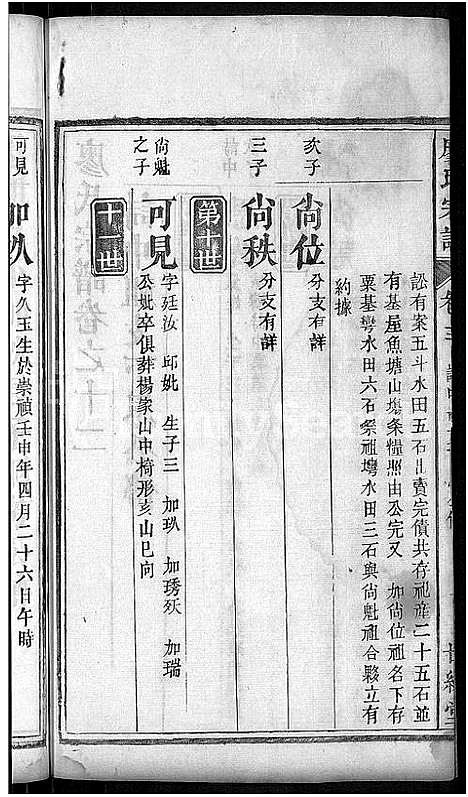 訟有案五斗水田五石出賣完債共存祀產二十五石並
有基屋魚塘山塲条糧照由公完又 加尙位祖名下存
粟基塆水田六石祭祖塆水田三石與尙魁祖合夥立有
約據
亥子
尙位
分支有詳
三子
尙秩
分支有詳
第十世
尙魁之子
可見
字廷汝 邱妣 生子三 加玖 加琇殀 加瑞
公妣卒俱葬楊家山中椅形亥山巳向
十一世
可見
加玖
字久玉生於崇禎壬申年四月二十六日午時
廖氏宗譜卷之十二